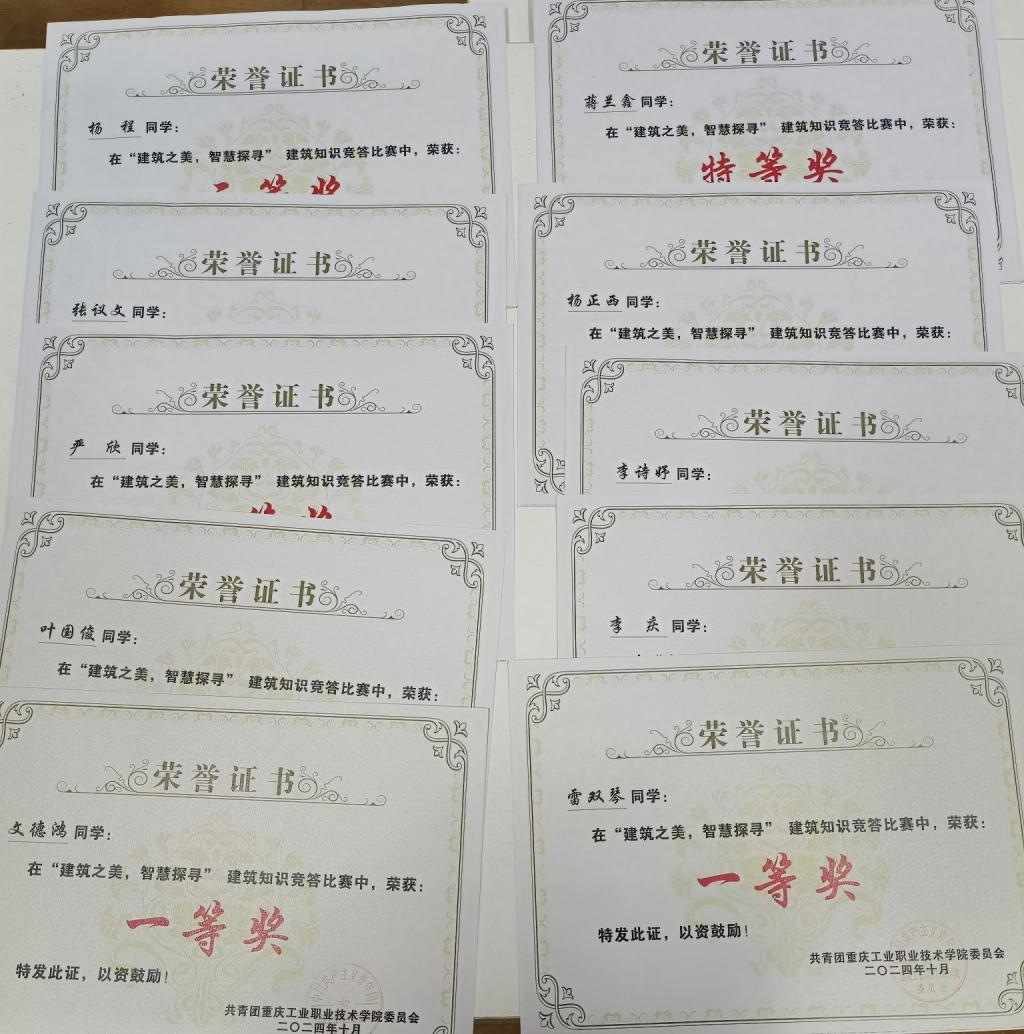 荣誉证书
杨 程 同学：
在“建筑之美，智慧探寻” 建筑知识竞答比赛中，荣获：
等奖
荣誉证书
张议文 同学：
荣誉证书
严 欣 同学：
在“建筑之美，智慧探寻” 建筑知识竞答比赛中，荣获：
荣誉证书
叶国俊 同学：
在“建筑之美，智慧探寻” 建筑知识竞答比赛中，荣获：
荣誉证书
文德鸿 同学：
在“建筑之美，智慧探寻” 建筑知识竞答比赛中，荣获：
一等奖
特发此证，以资鼓励！
共青团重庆工业职业技术学院委员会
二〇二四年十月
荣誉证书
蒋兰鑫 同学：
在“建筑之美，智慧探寻” 建筑知识竞答比赛中，荣获：
特等奖
荣誉证书
杨正西 同学：
在“建筑之美，智慧探寻” 建筑知识竞答比赛中，荣获：
荣誉证书
李诗妤 同学：
荣誉证书
李 庆 同学：
荣誉证书
雷双琴 同学：
在“建筑之美，智慧探寻” 建筑知识竞答比赛中，荣获：
一等奖
特发此证，以资鼓励！
共青团重庆工业职业技术学院委员会
二〇二四年十月